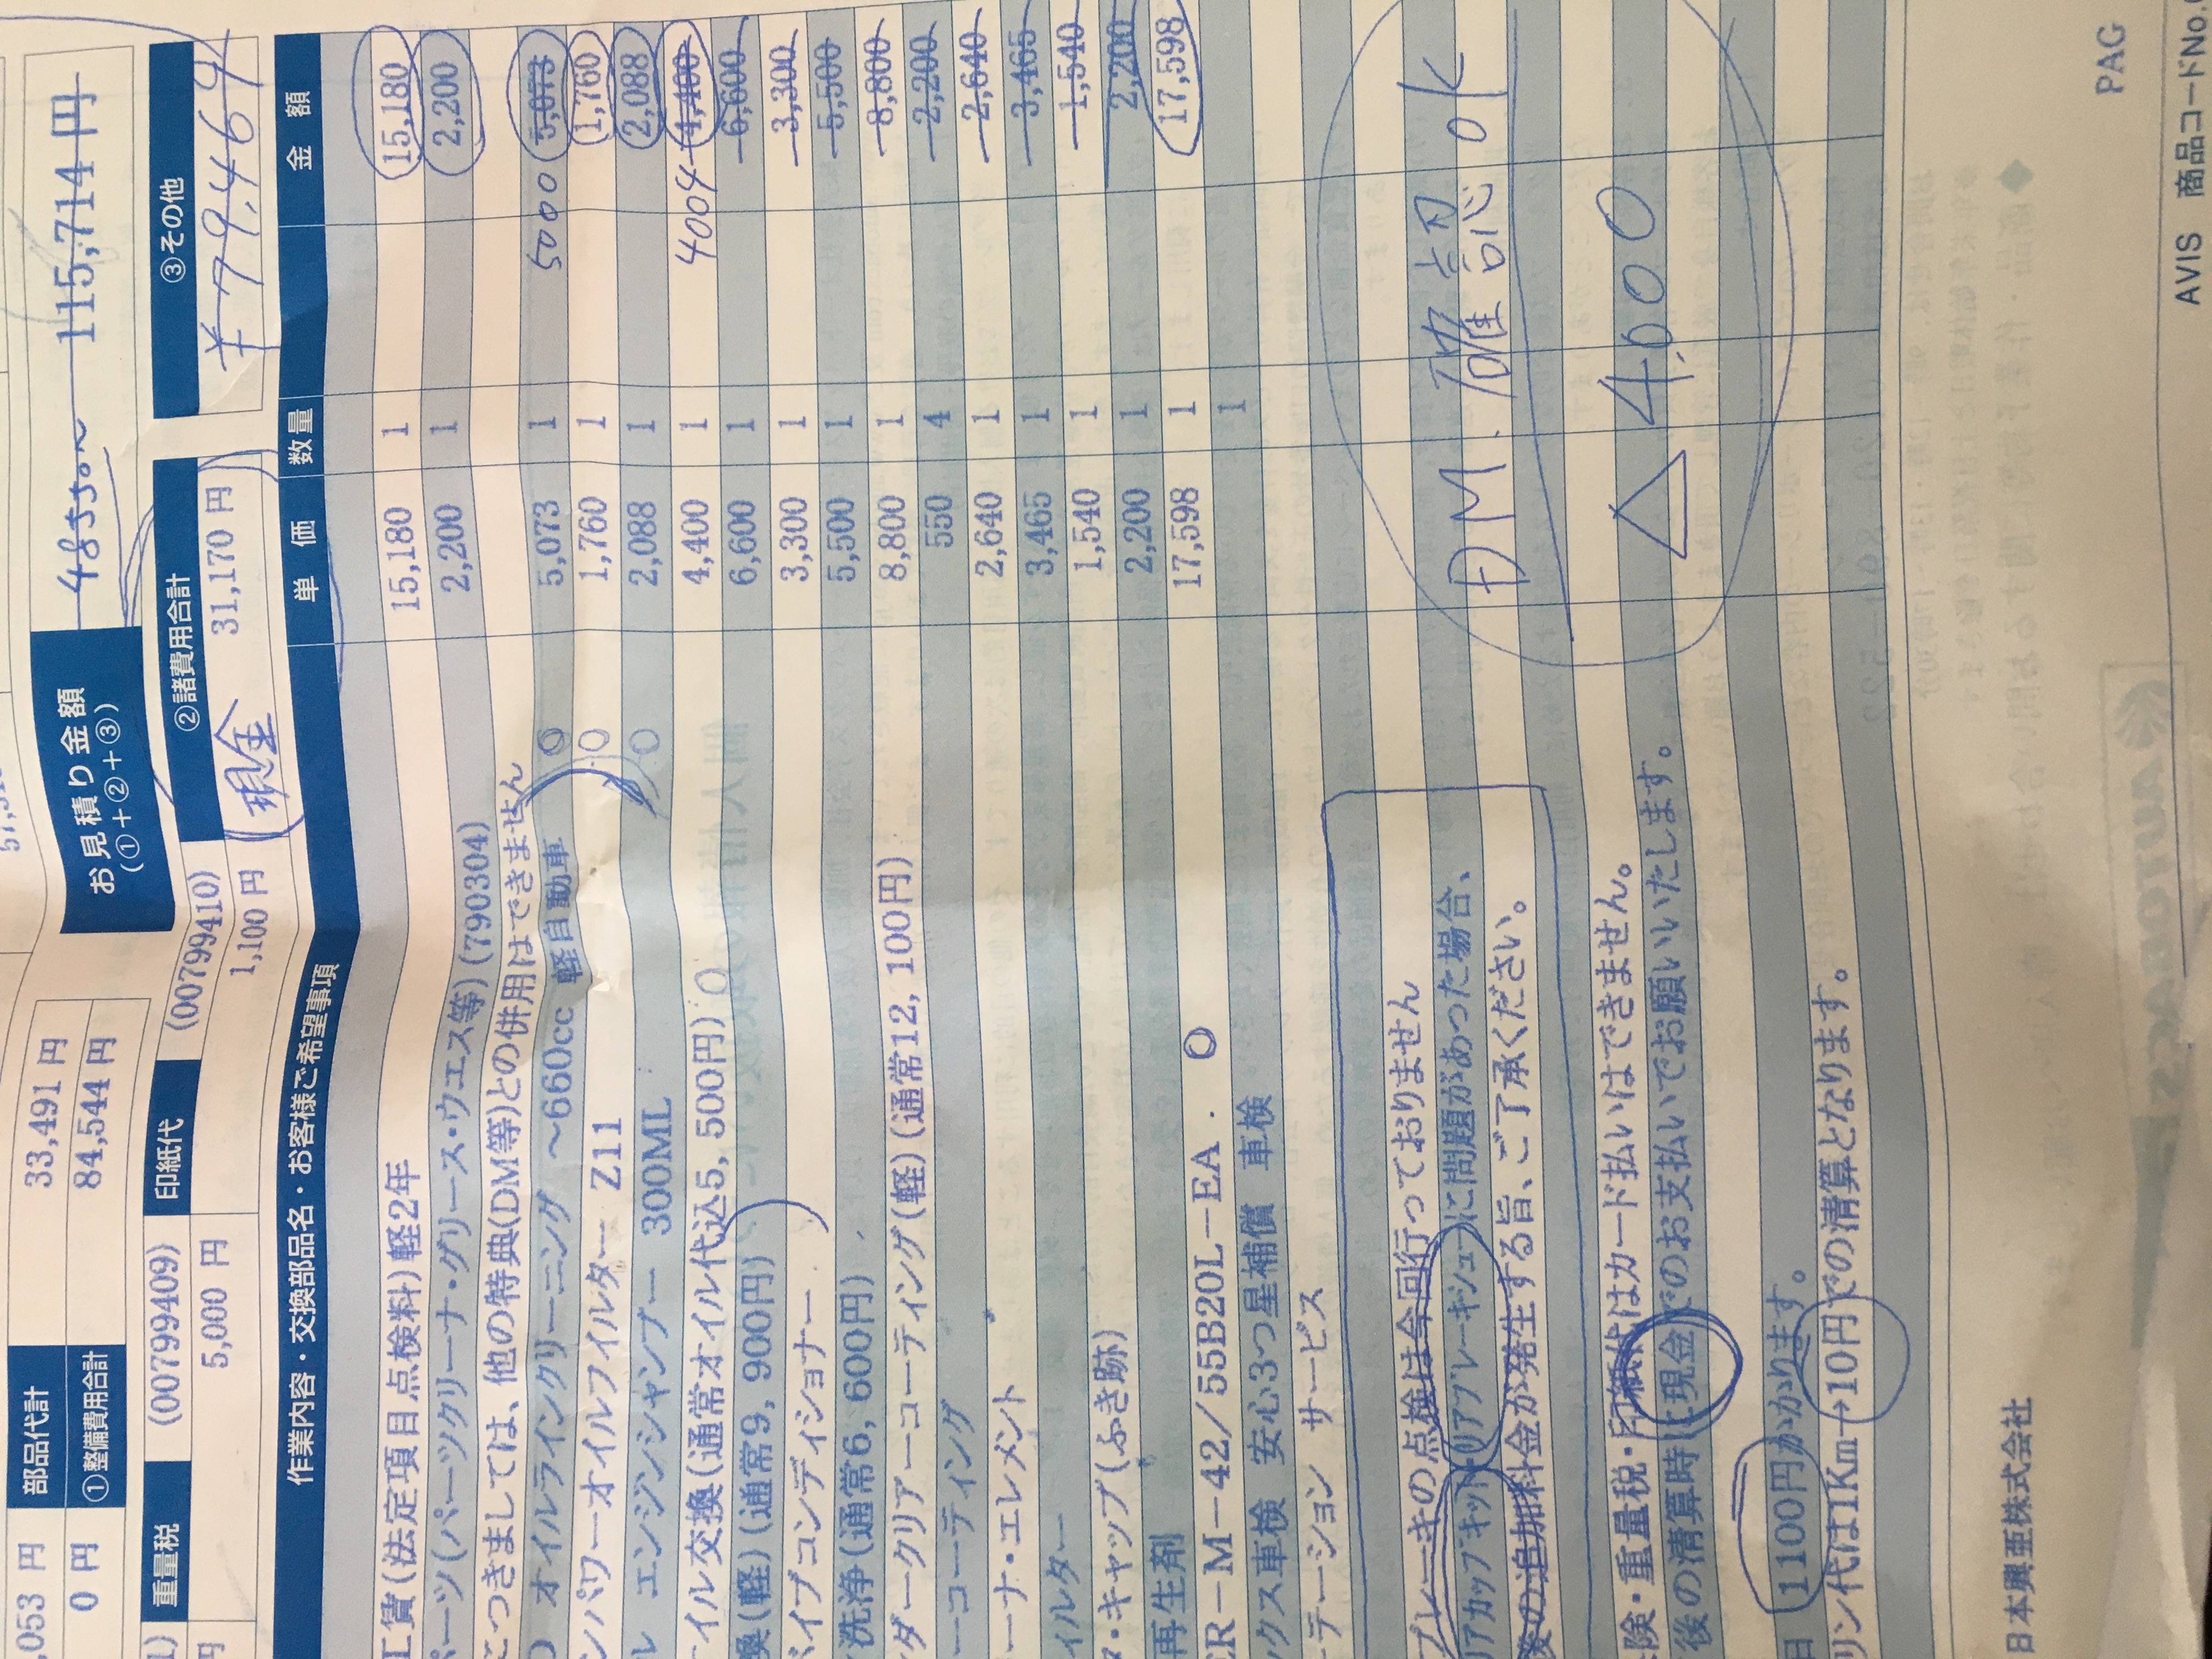 57,3
,053 円 部品代計 33,491 円
0 円 ①整備費用合計 84,544 円
お見積り金額 (①+②+③) 48550~ 115,714 円
重量税 (00799409) 印紙代 (00799410) ②諸費用合計 ③その他
円 5,000 円 1,100 円 31,170 円 ¥79,464
現金
作業内容・交換部品名・お客様ご希望事項 単 価 数量 金 額
工賃(法定項目点検料)軽2年 15,180 1 15,180
パーツ(パーツクリーナ・グリース・ウエス等)(790304) 2,200 1 2,200
につきましては、他の特典(DM等)との併用はできません
) オイルラインクリーニング ~660cc 軽自動車 5,073 1 5000 5,073
ンパワーオイルフィルター Z11 1,760 1 1,760
レ エンジンシャンプー 300ML 2,088 1 2,088
イル交換(通常オイル代込5,500円) 4,400 1 4004 4,400
換(軽)(通常9,900円) 6,600 1 6,600
パイプコンディショナー 3,300 1 3,300
洗浄(通常6,600円) 5,500 1 5,500
ダークリアーコーティング(軽)(通常12,100円) 8,800 1 8,800
ーコーティング 550 4 2,200
ーナ・エレメント 2,640 1 2,640
ィルター 3,465 1 3,465
・キャップ(ふき跡) 1,540 1 1,540
再生剤 2,200 1 2,200
ER-M-42/55B20L-EA 17,598 1 17,598
ックス車検 安心3つ星補償 車検 1
テーション サービス
ブレーキの点検は今回行っておりません
リアカップキット・リアブレーキシューに問題があった場合、
後の追加料金が発生する旨、ご了承ください。
DM.確認 OK
険・重量税・印紙代はカード払いはできません。
後の清算時に現金でのお支払いでお願いいたします。
△ 4,600
日 1100円かかります。
リン代は1Km→10円での清算となります。
日本興亜株式会社
PAG
AVIS 商品コードNo.